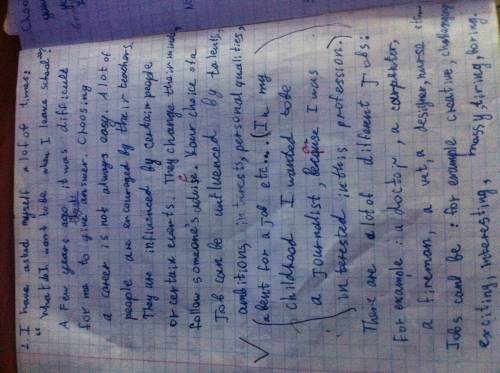 1. I have asked myself a lot of times:
"What do I want to be when I leave school?"
A few years ago it was difficult
for me to give answer. Choosing
a career is not always easy. A lot of
people are encouraged by their teachers.
They are influenced by certain people
or certain events. They change their minds,
follow someone's advice. Your choice of a
Job can be influenced by talents,
ambitions, interests, personal qualities,
talent for a job etc... (In my
childhood I wanted to be
a journalist, because I was
interested in this profession.)
There are a lot of different Jobs:
For example: a doctor, a carpenter,
a fireman, a vet, a designer, nurse
Jobs can be: for example creative, challenging
exciting, interesting, messy, tiring, boring.